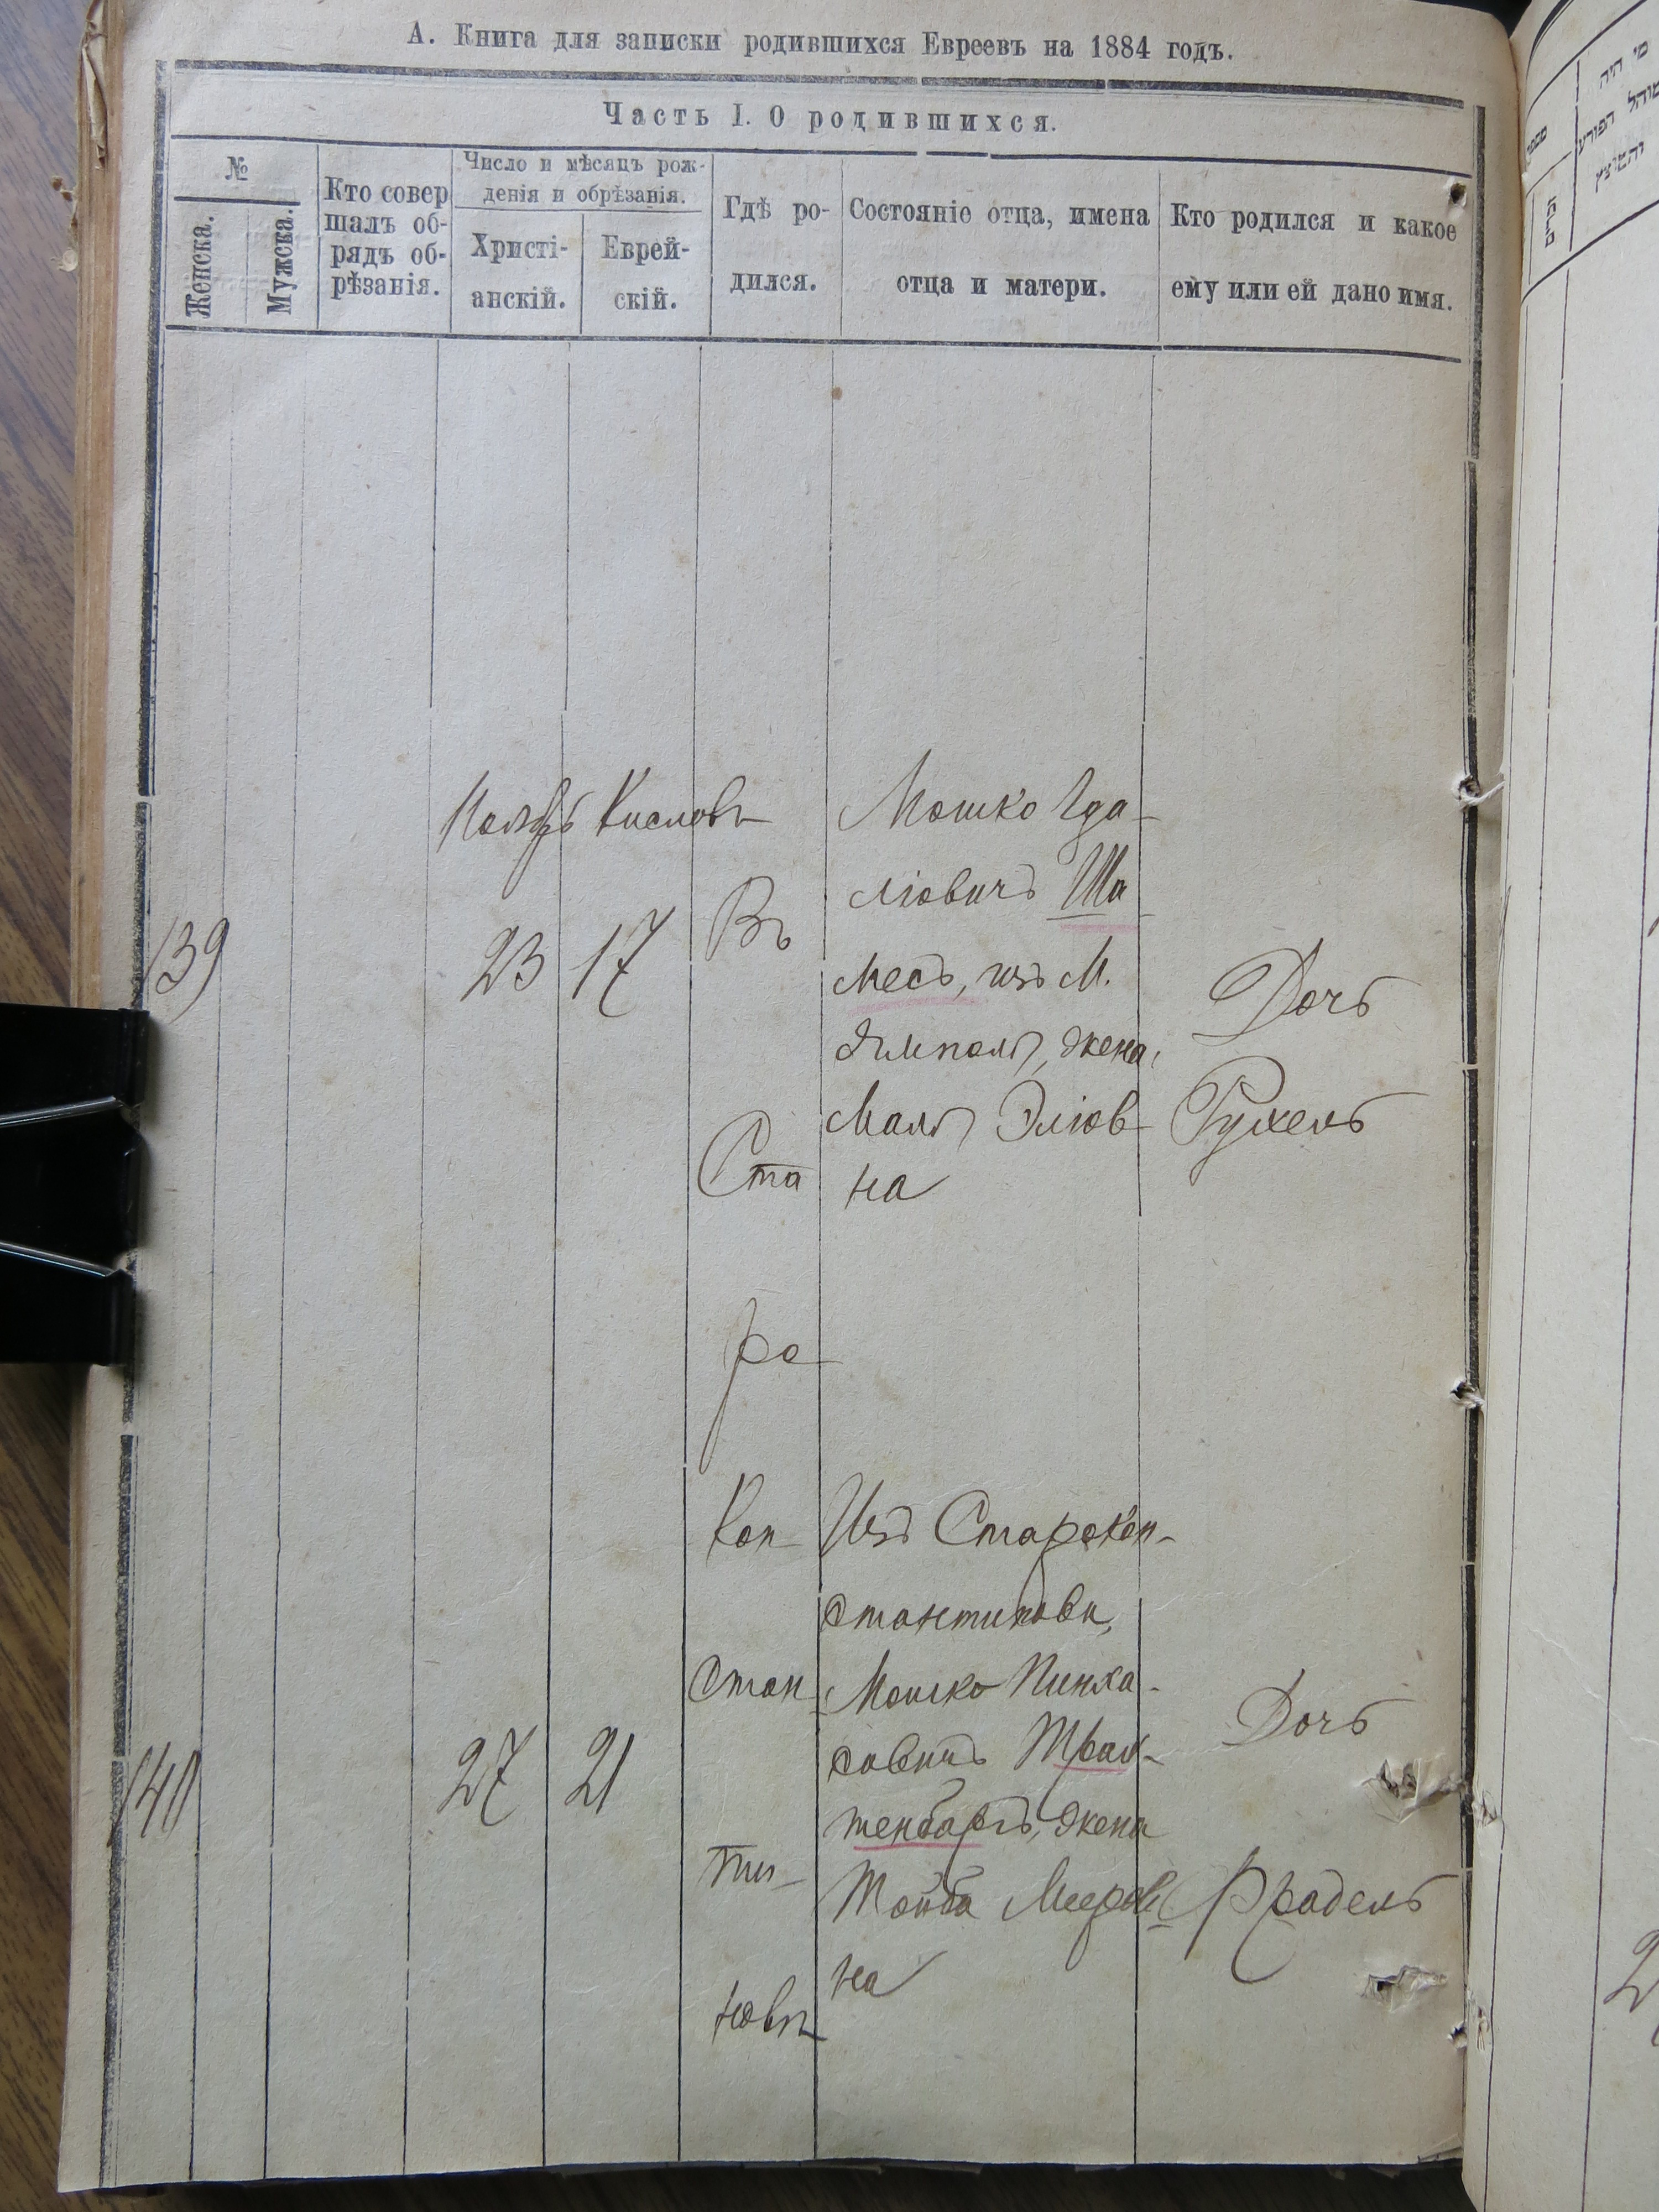 А. Книга для записки родившихся Евреевъ на 1884 годъ.
Часть I. О родившихся.
№
Женска.
Мужска.
Кто совер
шалъ об-
рядъ об-
рѣзанія.
Число и мѣсяцъ рож-
денія и обрѣзанія.
Христі-
анскій.
Еврей-
скій.
Гдѣ ро-
дился.
Состояніе отца, имена
отца и матери.
Кто родился и какое
ему или ей дано имя.
Ноябрь Кислевъ
139
23
17
Въ
Ста
ро
Кон
стан
ти-
новѣ
Мошко Гда-
ліовичъ Ша
месъ, изъ М.
Ямполя, жена,
Маля Эліов-
на
Дочь
Рухель
140
27
21
Изъ Старокон-
стантинова,
Мошко Пинха-
совичъ
тенбаргъ, жена
Тойба Мееров
на
Дочь
Фрадель
מי היה
מוהל הפורע
והמוצץ
מספר